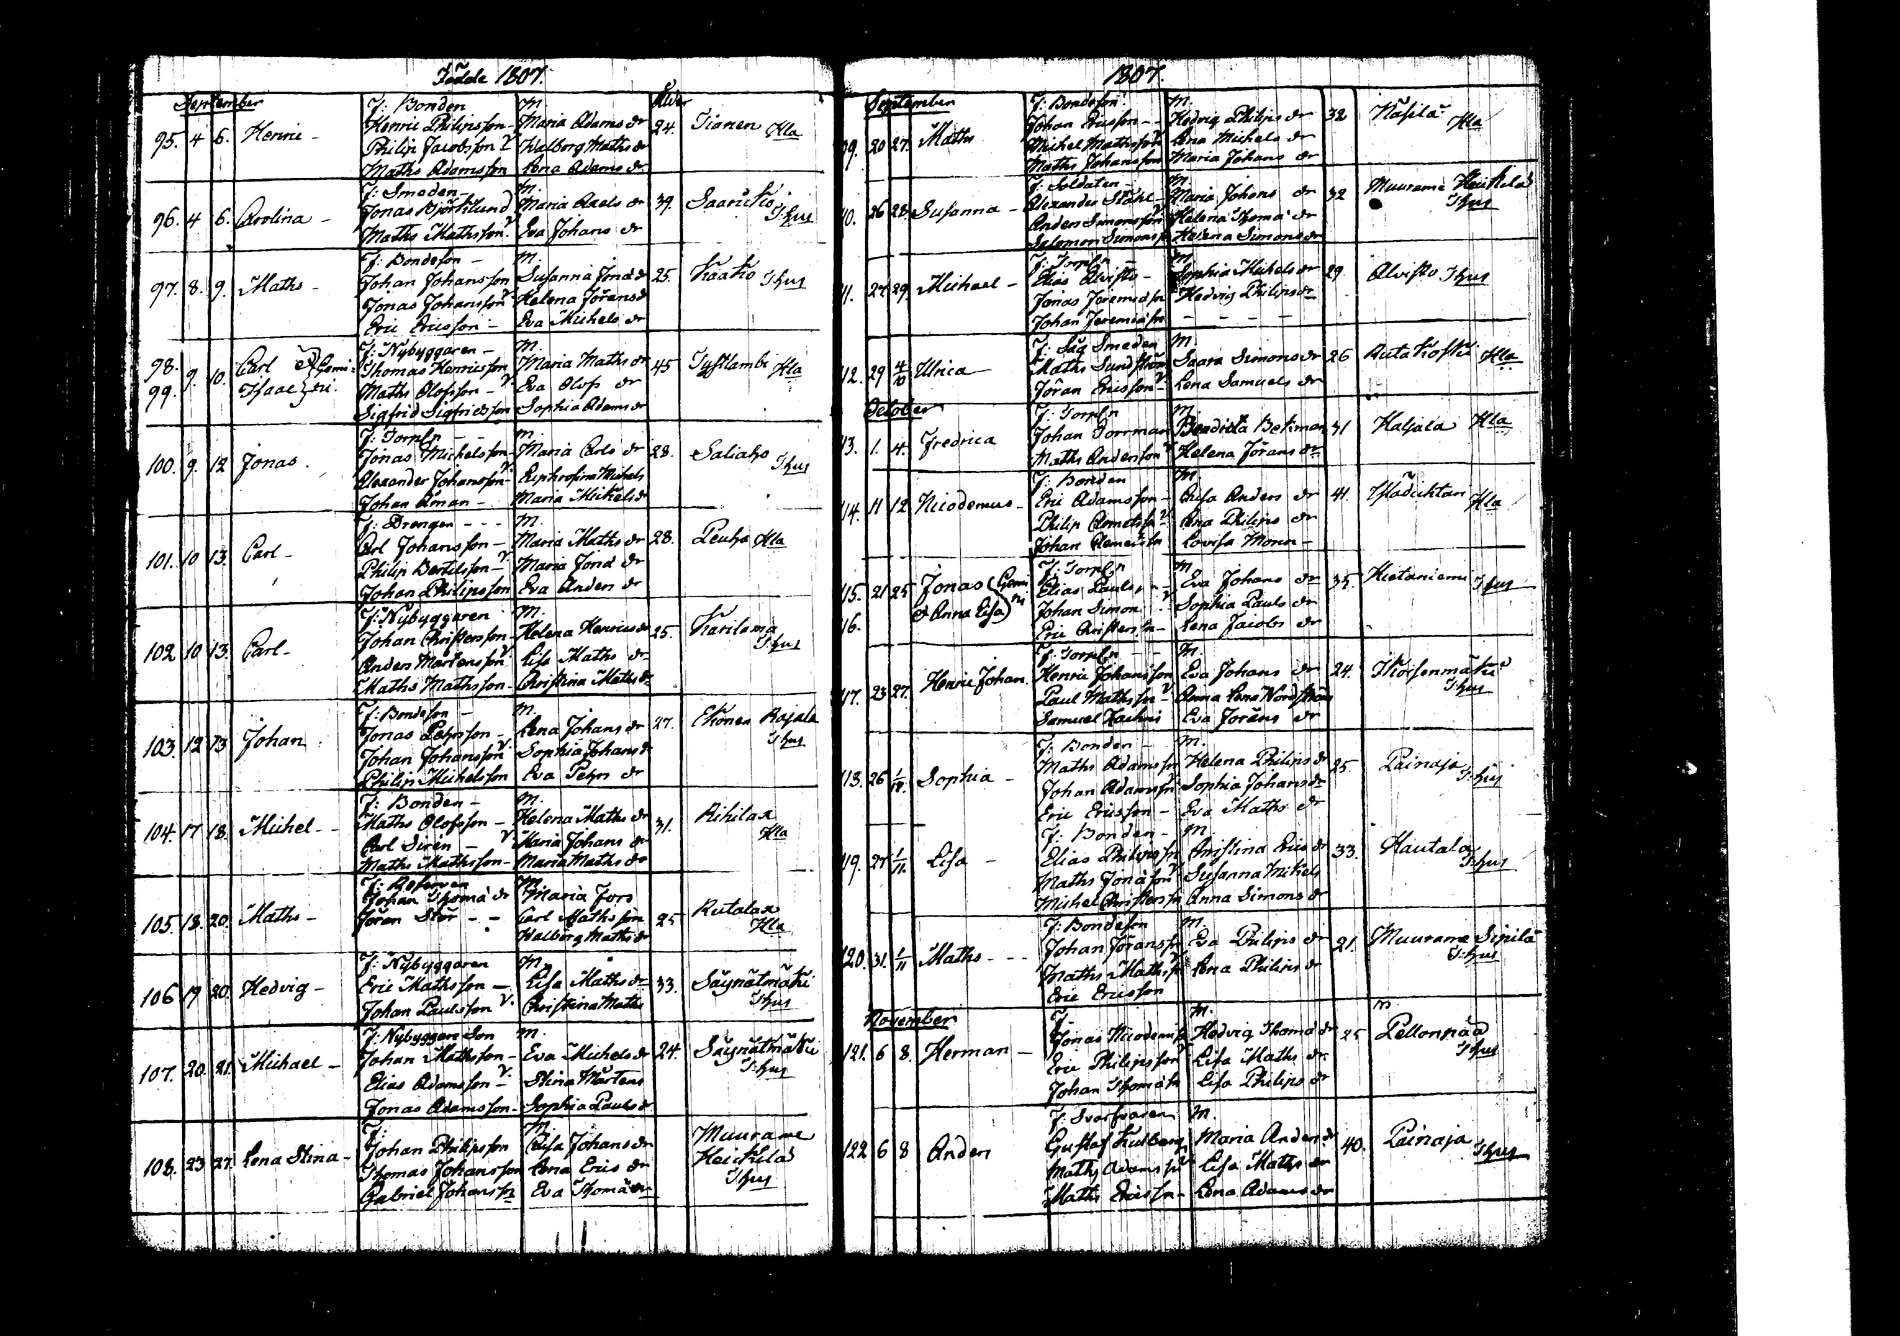 Födde 1807.
September
Ålder
95. 4 6. Henric -
F: Bonden M.
Henric Philipsson - Maria Adams dr 24. Tionen Kla
Philip Jacobsson Walborg Maths dr
Maths Adamsson Lena Adams dr
96. 4 6. Carolina -
F: Smeden - M.
Jonas Björklund Maria Axels dr 39. Saarikko Khus
Maths Mathsson Eva Johans dr
97. 8. 9. Maths -
F: Bondeson - M.
Johan Johansson Susanna Jona dr 25. Kaako Khus
Jonas Johansson Helena Jörans dr
Eric Ericsson - Eva Michels dr
98. 9. 10. Carl
99. Isaac
F: Nybyggaren - M.
Thomas Henricsson Maria Maths dr 45 Kla
Maths Olofsson - Eva Olofs dr
Sigfrid Sigfridsson Sophia Adams dr
100. 9. 12 Jonas.
F: Torp - - M.
Jonas Michelsson - Maria Carls dr 28. Saliaho Khus
Alexander Johansson - Euphrosina Michels
Johan Åman - Maria Michels dr
101. 10 13. Carl -
F: Drengen - - - M.
Carl Johansson - Maria Maths dr 28. Peuha Kla
Philip Bertilsson - Maria Jona dr
Johan Philipsson Eva Anders dr
102 10 13. Carl -
F: Nybyggaren M.
Johan Christersson - Helena Henrics dr 25. Karilama Khus
Anders Mårtensson Lisa Maths dr
Maths Mathsson - Christina Maths dr
103. 12 13 Johan
F: Bondeson - M.
Jonas Pehrsson - Lena Johans dr 27. Ekonen Rajala Khus
Johan Johansson Sophia Johans dr
Philip Michelsson Eva Pehrs dr
104. 17 18. Michel -
F: Bonden - M.
Maths Olofsson - Helena Maths dr 31. Rihilax Kla
Carl Siren - Maria Johans dr
Maths Mathsson - Maria Maths dr
105. 18. 20. Maths -
M.
Johan Thoma Maria Fors
Jören Stör - - Carl Mathsson 25 Rutalax Kla
Walborg Maths dr
106 19 20. Hedvig -
F: Nybyggaren M.
Eric Mathsson - Lisa Maths dr 33. Säynätmäki Khus
Johan Paulsson Christina Maths
107. 20. 21. Michael -
F: Nybyggare Son M.
Johan Mathsson - Eva Michels dr 24. Säynätmäki Khus
Elias Adamsson - Stina Mårtens
Jonas Adamsson - Sophia Pauls dr
108. 23 27. Lena Stina -
F: M.
Johan Philipsson Caisa Johans dr Muurame
Thomas Johansson Lena Erics dr Heickilä
Gabriel Johansson Eva Thomæ dr Khus
1807.
September
09. 20 27. Maths
F: Bondeson M.
Johan Ericsson - - Hedvig Philips dr 32 Kla
Michel Mathsson Lena Michels dr
Maths Johansson Maria Johans dr
10. 26 28 Susanna -
F: Soldaten - M.
Alexander Ståhl - Maria Johans dr 32 Muurame Heickilä
Anders Simonsson Helena Thoma dr Khus
Salomon Simonss Helena Simons dr
11. 27 29. Michael -
M.
Elias Alvisto - Sophia Michels dr 29. Alvisto Khus
Jonas Jeremiæ sn Hedvig Philips dr
Johan Jeremiæ sn - - - -
12. 29 4/10 Ulrica -
F: Såg Smeden M.
Maths Sundström Saara Simons dr 26 Rutakoski Kla
Jöran Ericsson - Lena Samuels dr
October
13. 1. 4. Fredrica
F: M.
Johan Dorrman Benedicta Bekman 31 Haljala Kla
Maths Andersson Helena Jörans dr
14. 11 12 Nicodemus -
F: Bonden M.
Eric Adamsson - Caisa Anders dr 41. Kla
Philip Clemetss Lena Philips dr
Johan Clemetss Lovisa Monn -
15. 21 25 Jonas
16. & Anna Lisa
M.
Elias Pauls - Eva Johans dr 35. Hietaniemi Khus
Johan Simon Sophia Pauls dr
Eric Christerss - Lena Jacobs dr
17. 23 27. Henric Johan
M.
Henric Johansson Eva Johans dr 24. Khus
Paul Mathsson - Anna Lena Nordström
Samuel Eva Jorans dr
118. 26 1/11. Sophia -
F: Bonden - M.
Maths Adamsson Helena Philips dr 25. Painaja Khus
Johan Adamsson Sophia Johans dr
Eric Ericsson - Eva Maths dr
119. 27 1/11. Lisa -
F: Bonden - M.
Elias Philipsson Christina Erics dr 33. Hautala Khus
Maths Jonasson Susanna Michels
Michel Christerss Anna Simons dr
120. 31. 1/11 Maths - - -
F: Bondeson M.
Johan Jöransson Eva Philips dr 21. Muurame Sipilä
Maths Mathsson Lena Philips dr Khus
Eric Ericsson
November
121. 6 8. Herman -
F: M.
Jonas Nicodemuss Hedvig Thoma dr 25 Pellonpää Khus
Eric Philipsson Lisa Maths dr
Johan Thomæ sn Lisa Philips dr
122 6 8 Anders
F: Svarfvaren M.
Gustaf Kulberg Maria Anders dr 40. Painaja Khus
Maths Adamsson Lisa Maths dr
Maths Ericsson - Lena Adams dr